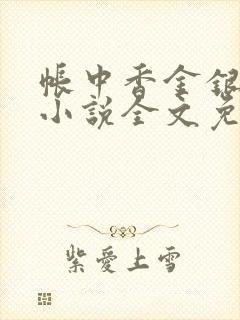 帳中香金銀
小說全文免
紫愛上雪